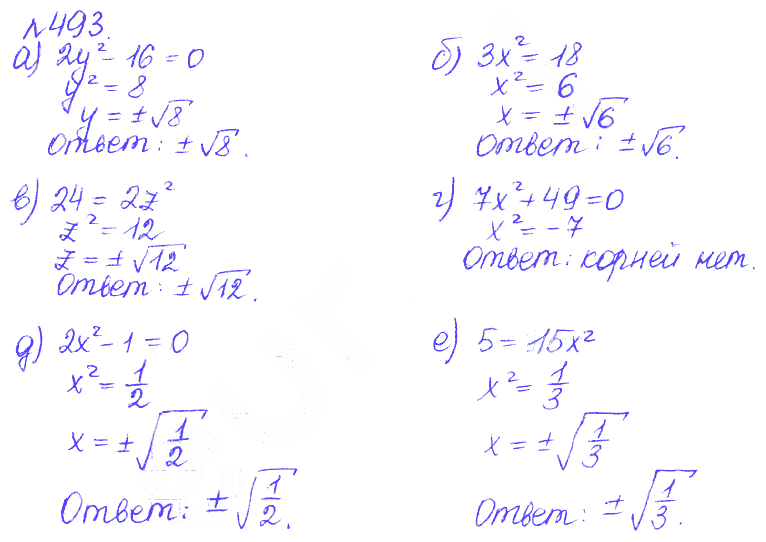 №493.
а) 2y² - 16 = 0
y² = 8
y = ±√8
Ответ: ±√8.
б) 3x² = 18
x² = 6
x = ±√6
Ответ: ±√6.
в) 24 = 2z²
z² = 12
z = ±√12
Ответ: ±√12.
г) 7x² + 49 = 0
x² = -7
Ответ: корней нет.
д) 2x² - 1 = 0
x² = 1/2
x = ±√(1/2)
Ответ: ±√(1/2).
е) 5 = 15x²
x² = 1/3
x = ±√(1/3)
Ответ: ±√(1/3).